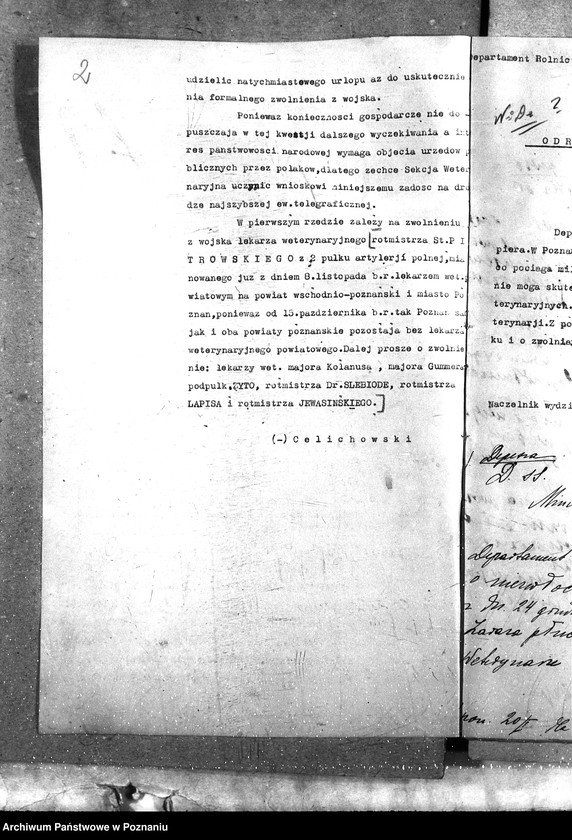 2
udzielic natychmiastowego urlopu az do uskutecznie
nia formalnego zwolnienia z wojska.
Poniewaz konieczności gospodarcze nie do -
puszczaja w tej kwestji dalszego wyczekiwania a
res panstwowosci narodowej wymaga objecia urzedow
blicznych przez polakow,dlatego zechce Sekcja
naryjna uczynic wnioskowi niniejszemu zadosc na
dze najszybszej ew.telegraficznej.
W pierwszym rzedzie zalezy na zwolnieniu
z wojska lekarza weterynaryjnego [rotmistrza St.P I
T R O W S K I E G O z 2 pulku artylerji polnej,mia
nowanego juz z dniem 8.listopada b.r.lekarzem wet.
wiatowym na powiat wschodnio-poznański i miasto Po
znan,poniewaz od 15.pazdziernika b.r.tak Poznan
jak i oba powiaty poznanskie pozostaja bez lekarza
weterynaryjnego powiatowego.Dalej prosze o zwolnie
nie: lekarzy wet. majora Kolanusa , majora Gummera
podpulk.ZYTO, rotmistrza Dr.SLEBIODE, rotmistrza
LAPISA i rotmistrza JEWASINSKIEGO.]
(-) C e l i c h o w s k i
epartament Rolnic
O D R
Dep
piera.W Poznan
co pociaga mil
nie moga skute
terynaryjnych.
terynarji.Z po
ku i o zwolnie
Naczelnik wydzi
Depesza
D. ss.
Departament
z dn. 24
Archiwum Państwowe w Poznaniu